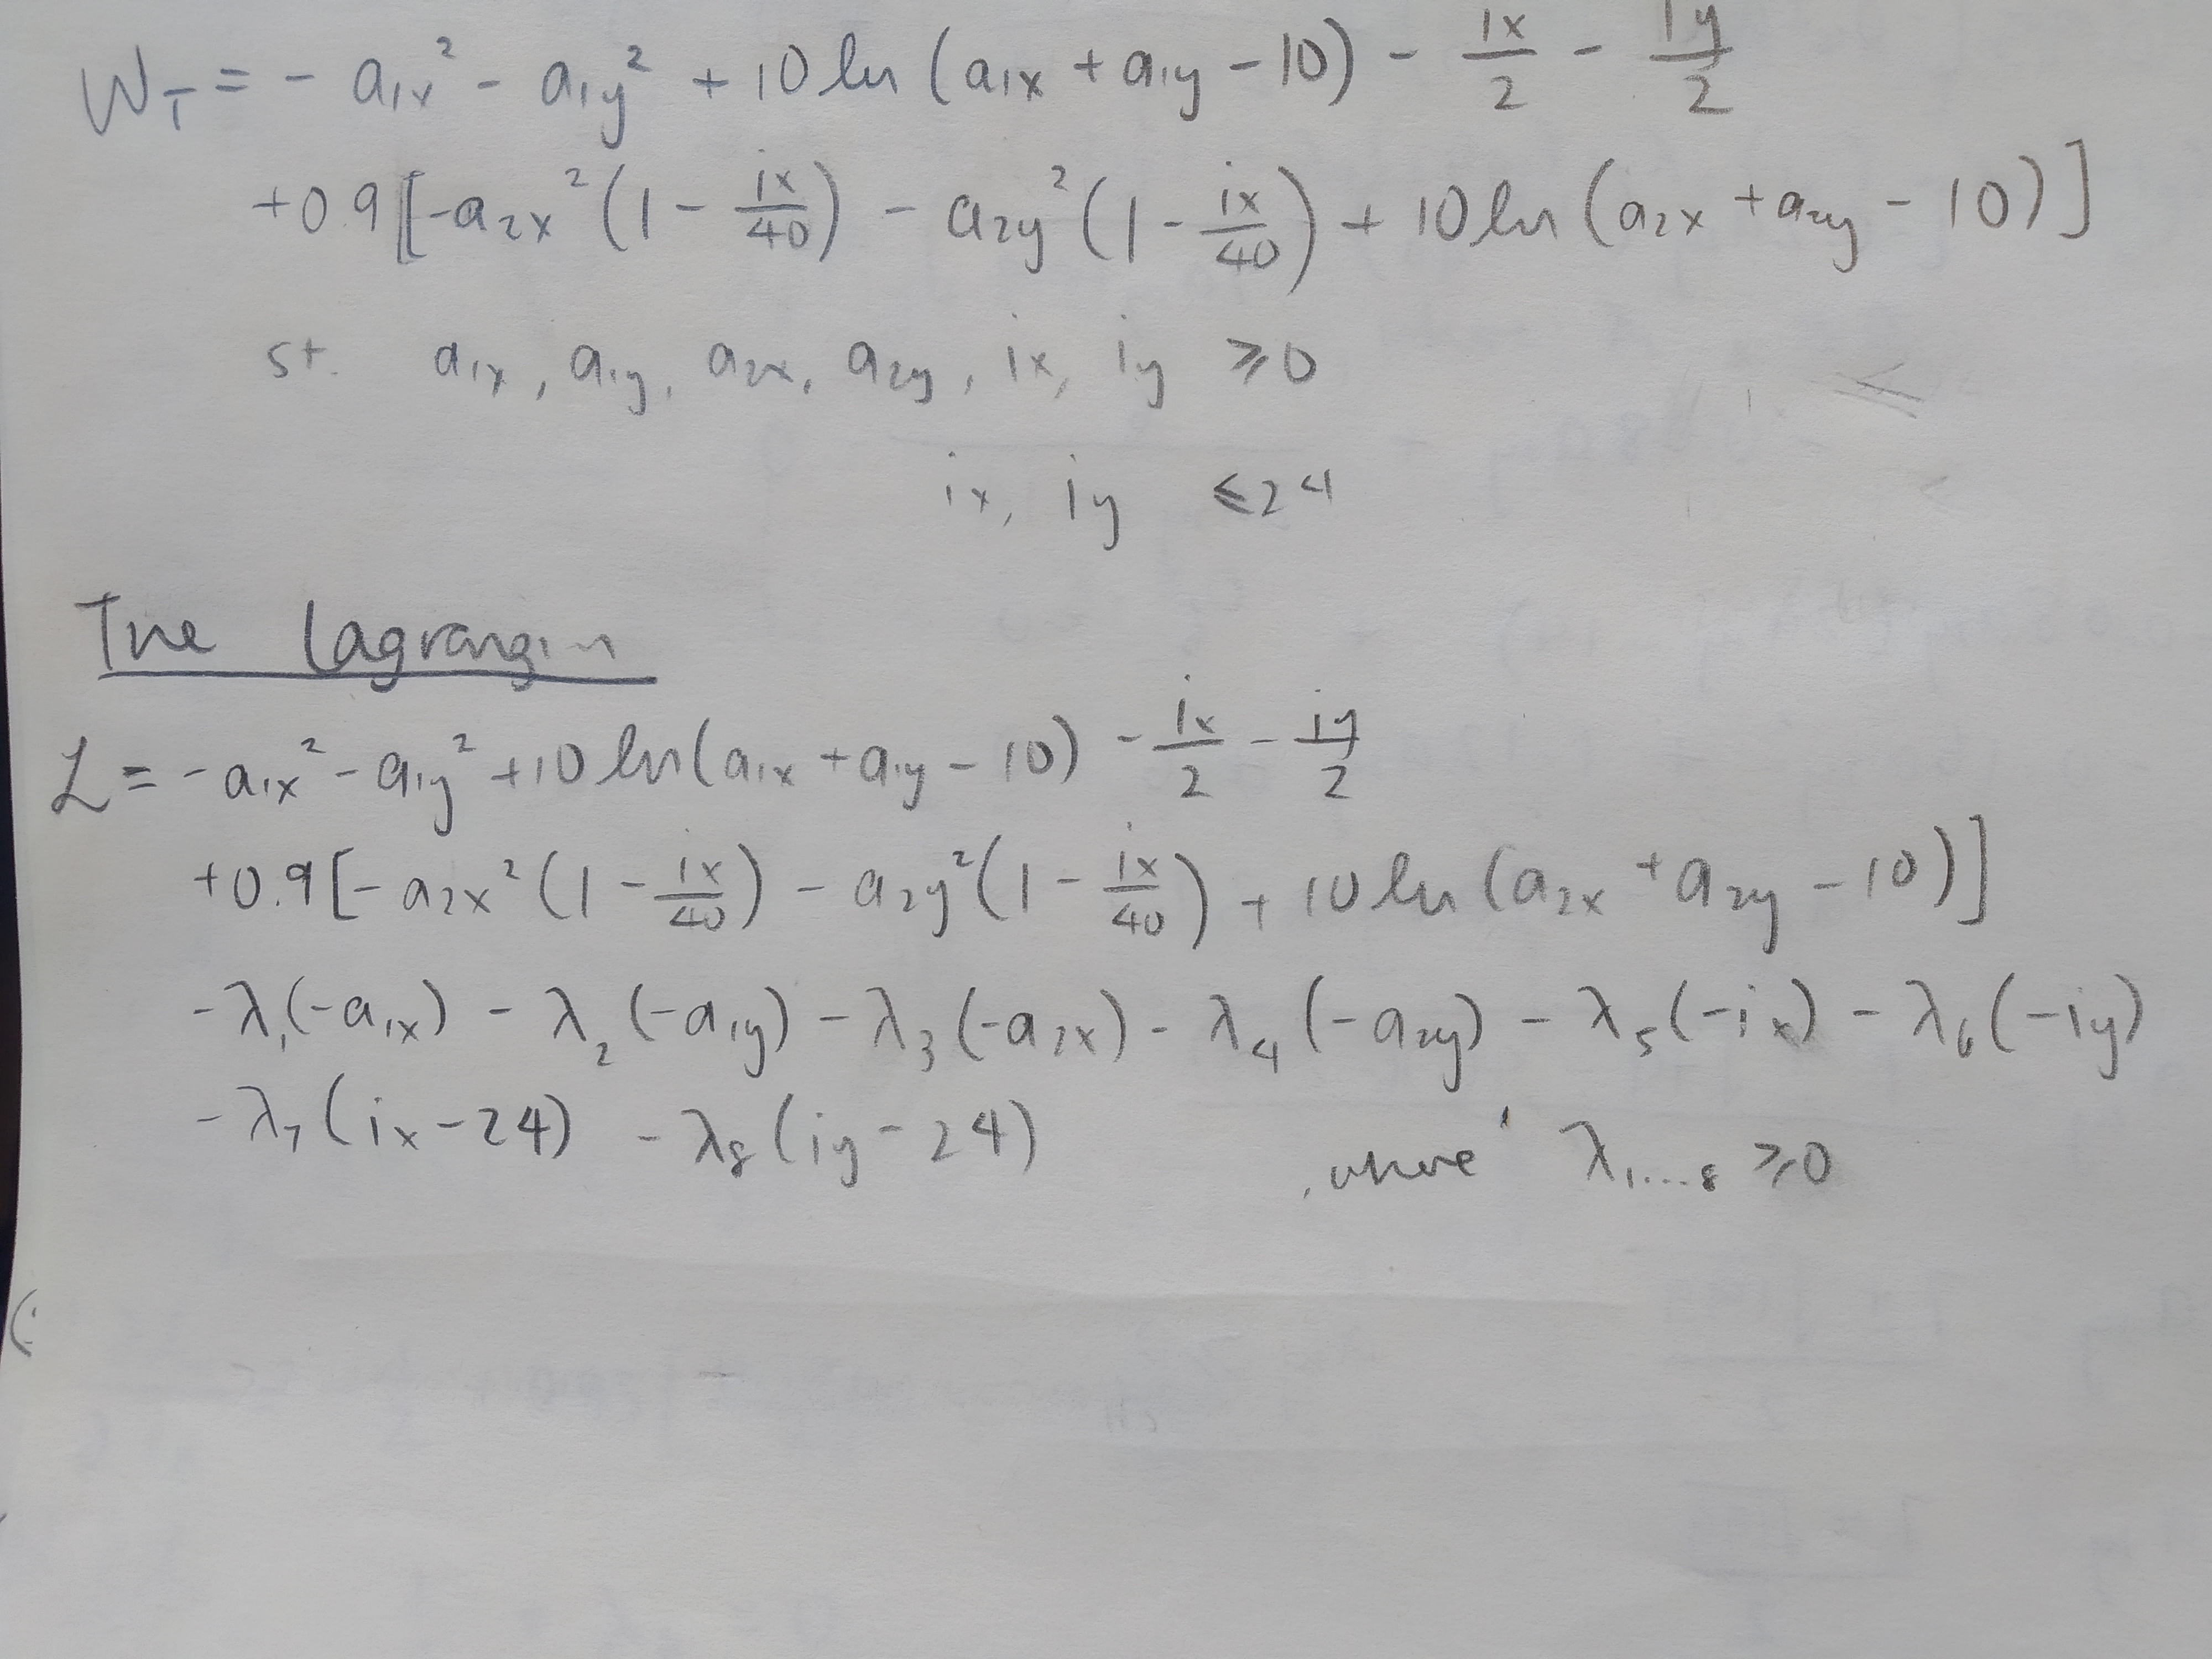 W_T = - a_{1x}^2 - a_{1y}^2 + 10 ln (a_{1x} + a_{1y} - 10) - ix/2 - iy/2
+0.9 [-a_{2x}^2 (1 - ix/40) - a_{2y}^2 (1 - ix/40) + 10 ln (a_{2x} + a_{2y} - 10)]
st. a_{1x}, a_{1y}, a_{2x}, a_{2y}, ix, iy ⩾ 0
ix, iy ⩽ 24
The Lagrangin
ℒ = - a_{1x}^2 - a_{1y}^2 + 10 ln(a_{1x} + a_{1y} - 10) - ix/2 - iy/2
+0.9 [- a_{2x}^2 (1 - ix/40) - a_{2y}^2 (1 - ix/40) + 10 ln (a_{2x} + a_{2y} - 10)]
-λ_1(-a_{1x}) - λ_2(-a_{1y}) - λ_3(-a_{2x}) - λ_4(-a_{2y}) - λ_5(-ix) - λ_6(-iy)
-λ_7(ix-24) -λ_8(iy-24) , where λ_{1...8} ⩾ 0